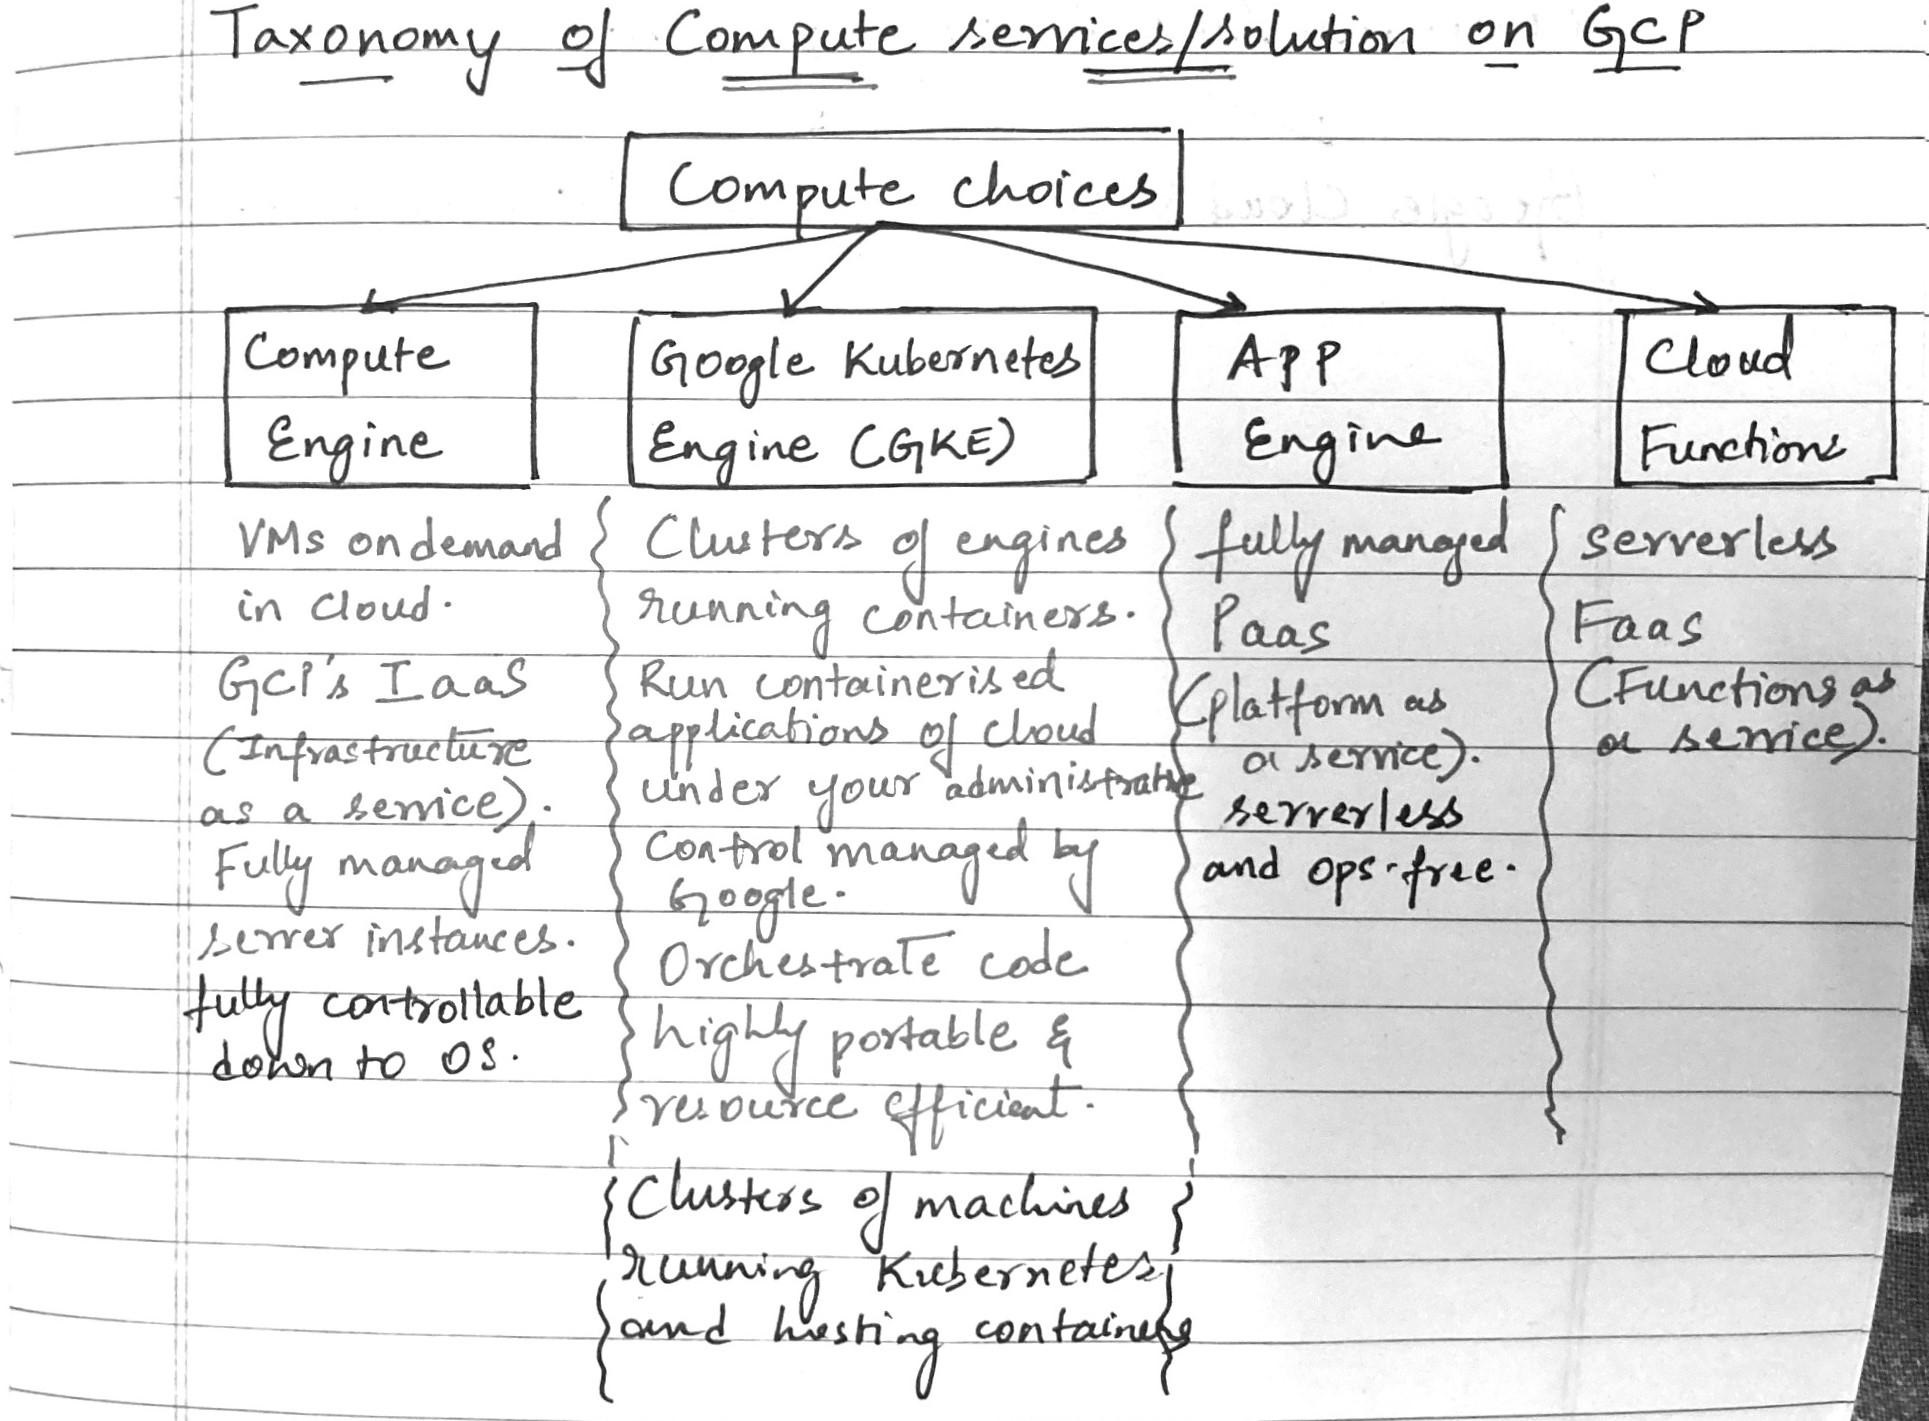 Taxonomy of Compute services/solution on GCP
Compute choices
Compute
Engine
Google Kubernetes
Engine (GKE)
App
Engine
Cloud
Functions
VMs on demand
in cloud.
GCP's IaaS
(Infrastructure
as a service).
Fully managed
server instances.
fully controllable
down to OS.
Clusters of engines
running containers.
Run containerised
applications of cloud
under your administrative
control managed by
Google.
Orchestrate code
highly portable &
resource efficient.
Clusters of machines
running Kubernetes
and hosting containers
fully managed
Paas
(platform as
a service).
serverless
and ops-free.
serverless
Faas
(Functions as
a service).